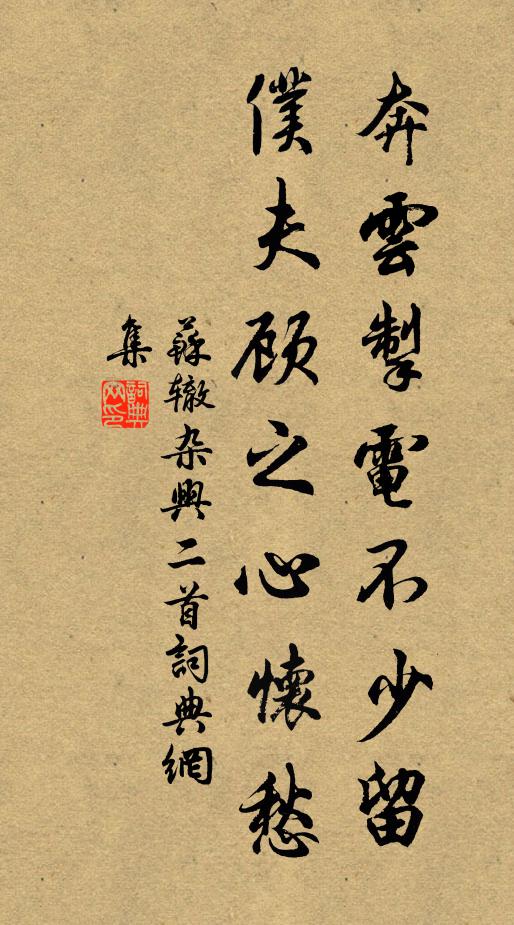 奔雲掣電不少留
僕夫顾之心懷愁
蘇辙杂興二首詞典網
集
詞典
网印